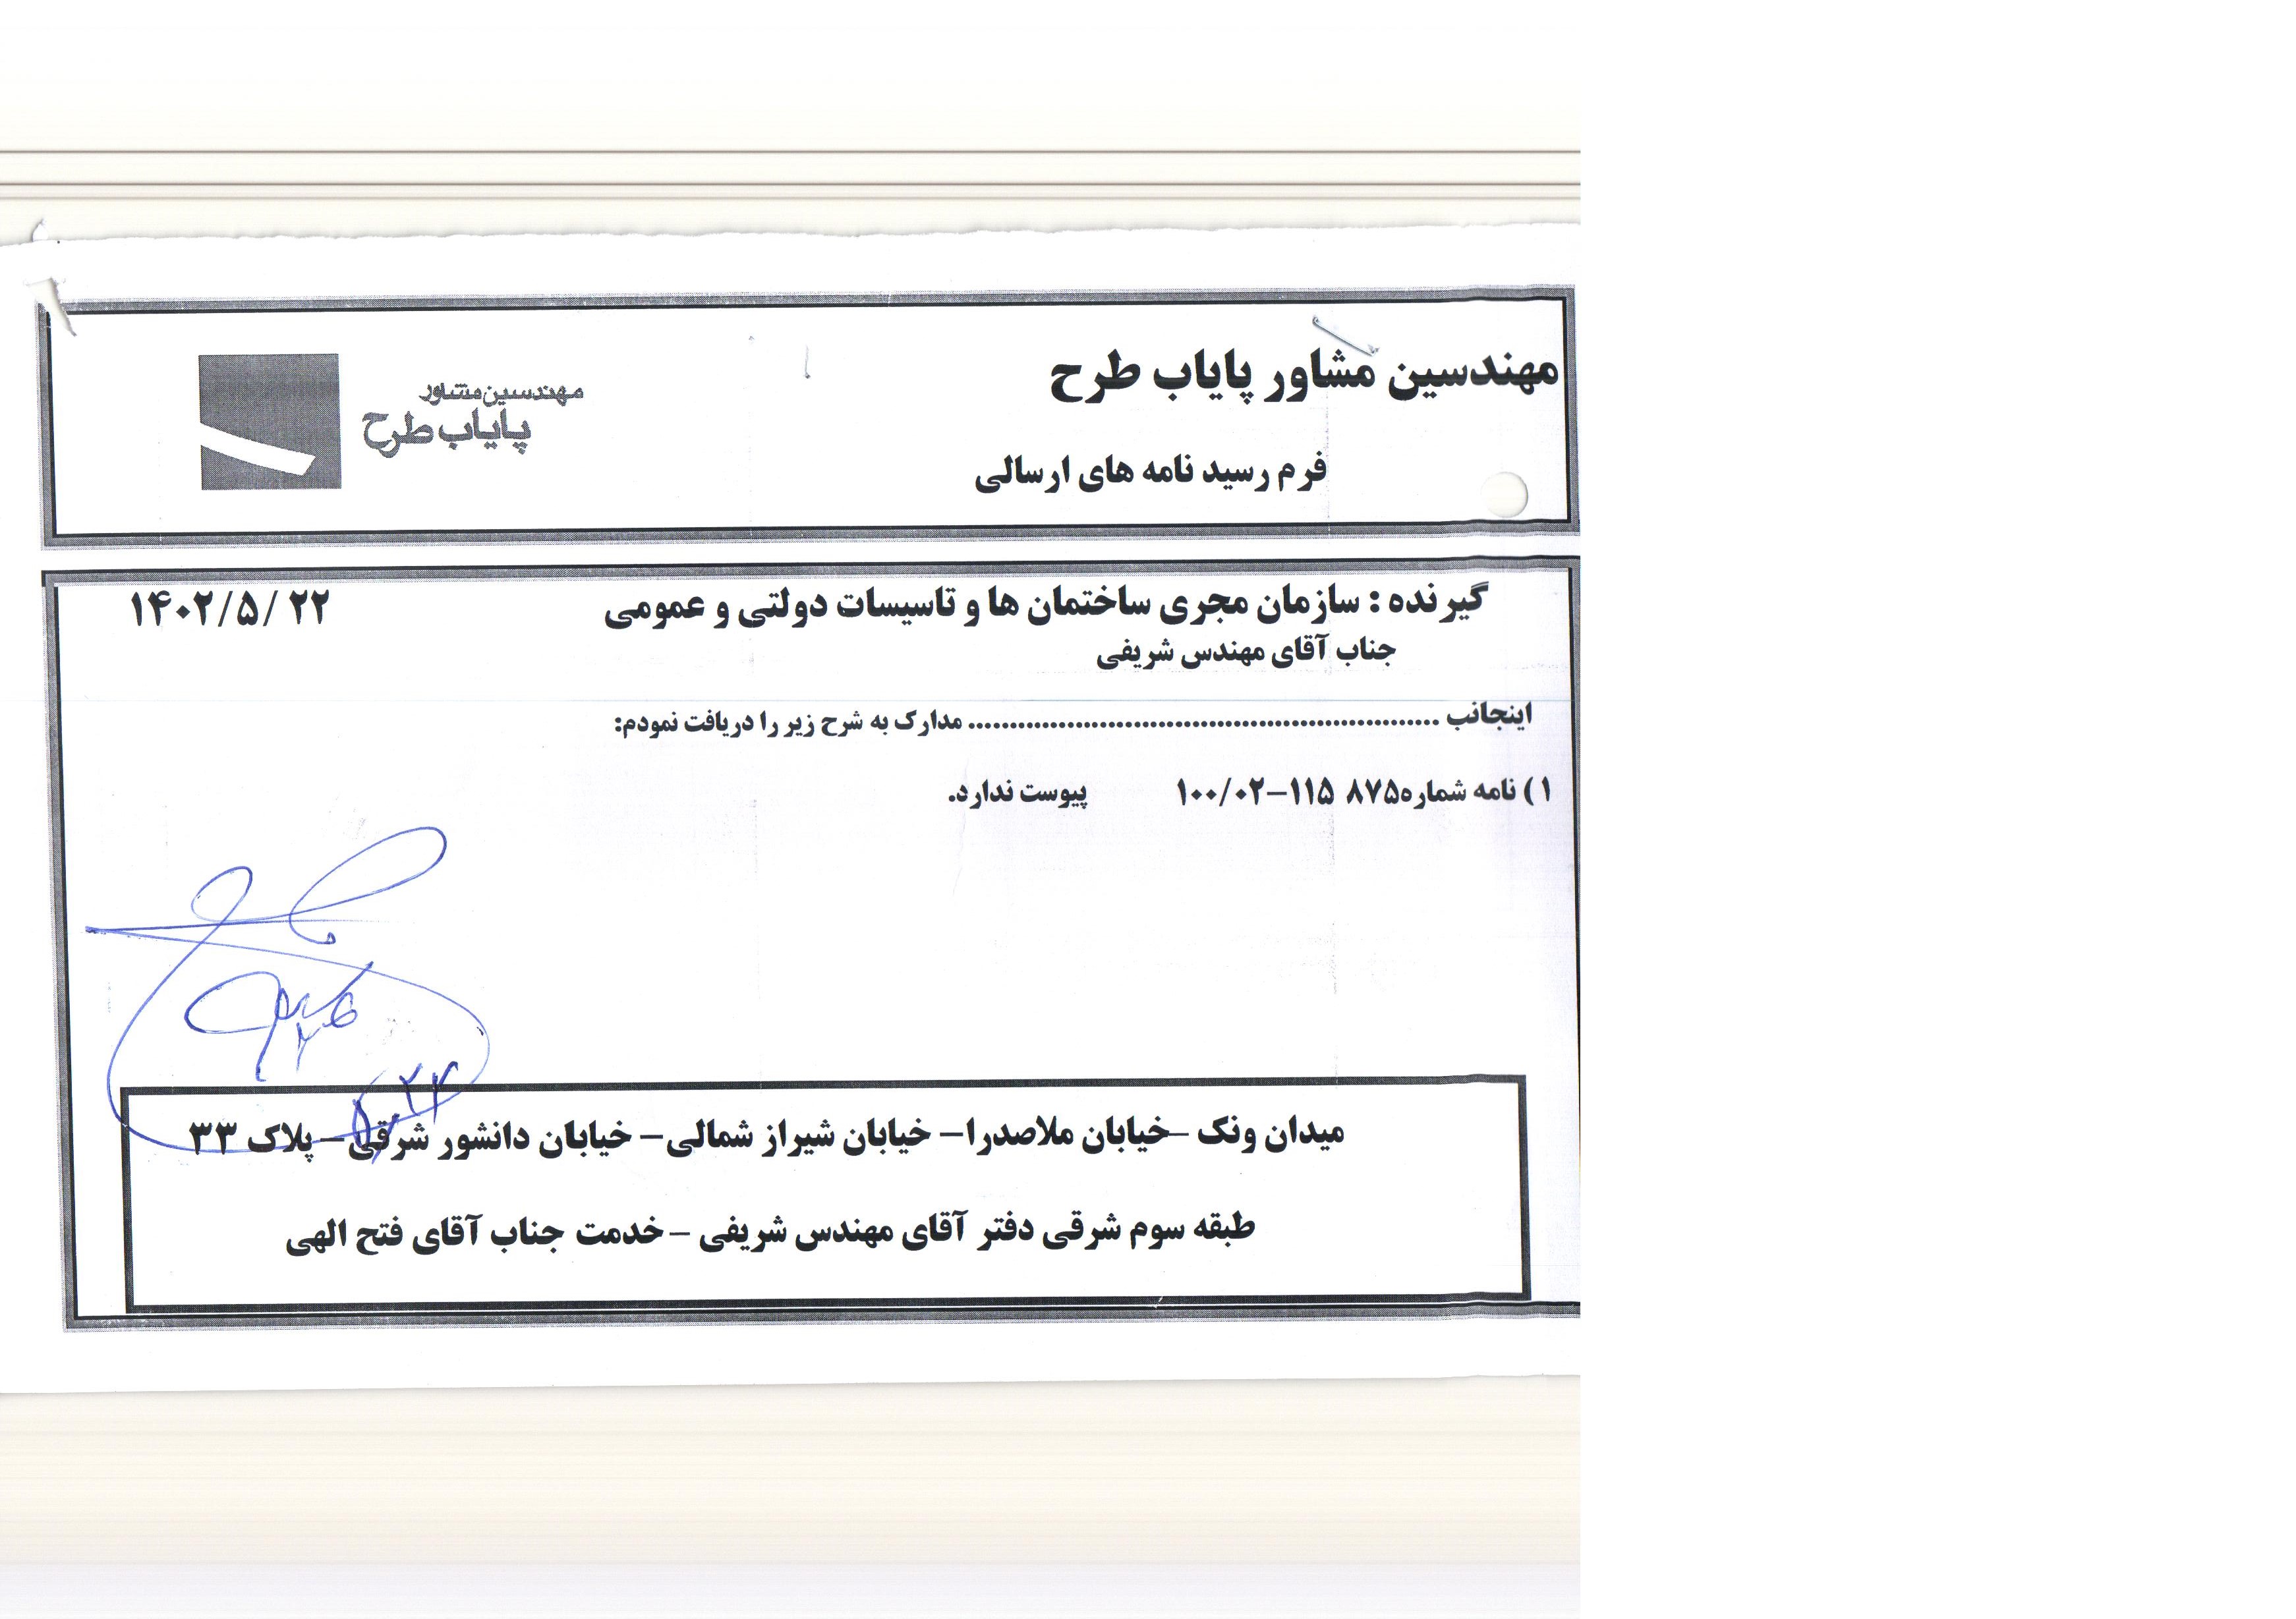 مهندسین مشاور پایاب طرح
مهندسین مشاور
پایاب طرح
فرم رسید نامه های ارسالی
گیرنده : سازمان مجری ساختمان ها و تاسیسات دولتی و عمومی
۱۴۰۲/۵/ ۲۲
جناب آقای مهندس شریفی
اینجانب ........................................................ مدارک به شرح زیر را دریافت نمودم:
۱) نامه شماره۸۷۵ ۱۱۵-۱۰۰/۰۲ پیوست ندارد.
میدان ونک –خیابان ملاصدرا– خیابان شیراز شمالی– خیابان دانشور شرقی– پلاک ۳۳
طبقه سوم شرقی دفتر آقای مهندس شریفی – خدمت جناب آقای فتح الهی